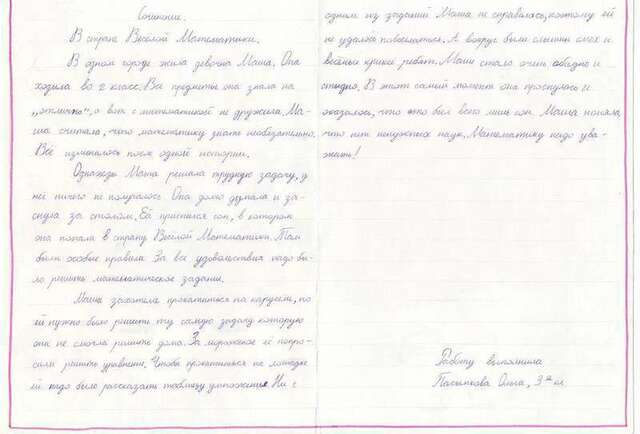 Сочинение.
В стране Весёлой Математики.
В одном городе жила девочка Маша. Она
ходила во 2 класс. Все предметы она знала на
„отлично“, а вот с математикой не дружила. Ма-
ша считала, что математику знать необязательно.
Всё изменилось после одной истории.
Однажды Маша решала трудную задачу, у
неё ничего не получалось. Она долго думала и за-
снула за столом. Ей приснился сон, в котором
она попала в страну Весёлой Математики. Там
были особые правила. За все удовольствия надо бы-
ло решить математическое задание.
Маша захотела прокатиться на карусели, но
ей нужно было решить ту самую задачу которую
она не смогла решить дома. За мороженое её попро-
сили решить уравнение. Чтобы прокатиться на лошадке
ей надо было рассказать таблицу умножения. Ни с
одним из заданий Маша не справилась, поэтому ей
не удалось повеселиться. А вокруг были слышны смех и
весёлые крики ребят. Маше стало очень обидно и
стыдно. В этот самый момент она проснулась и
оказалось, что это был всего лишь сон. Маша поняла,
что нет ненужных наук. Математику надо ува-
жать!
Работу выполнила
Ольга, 3 кл